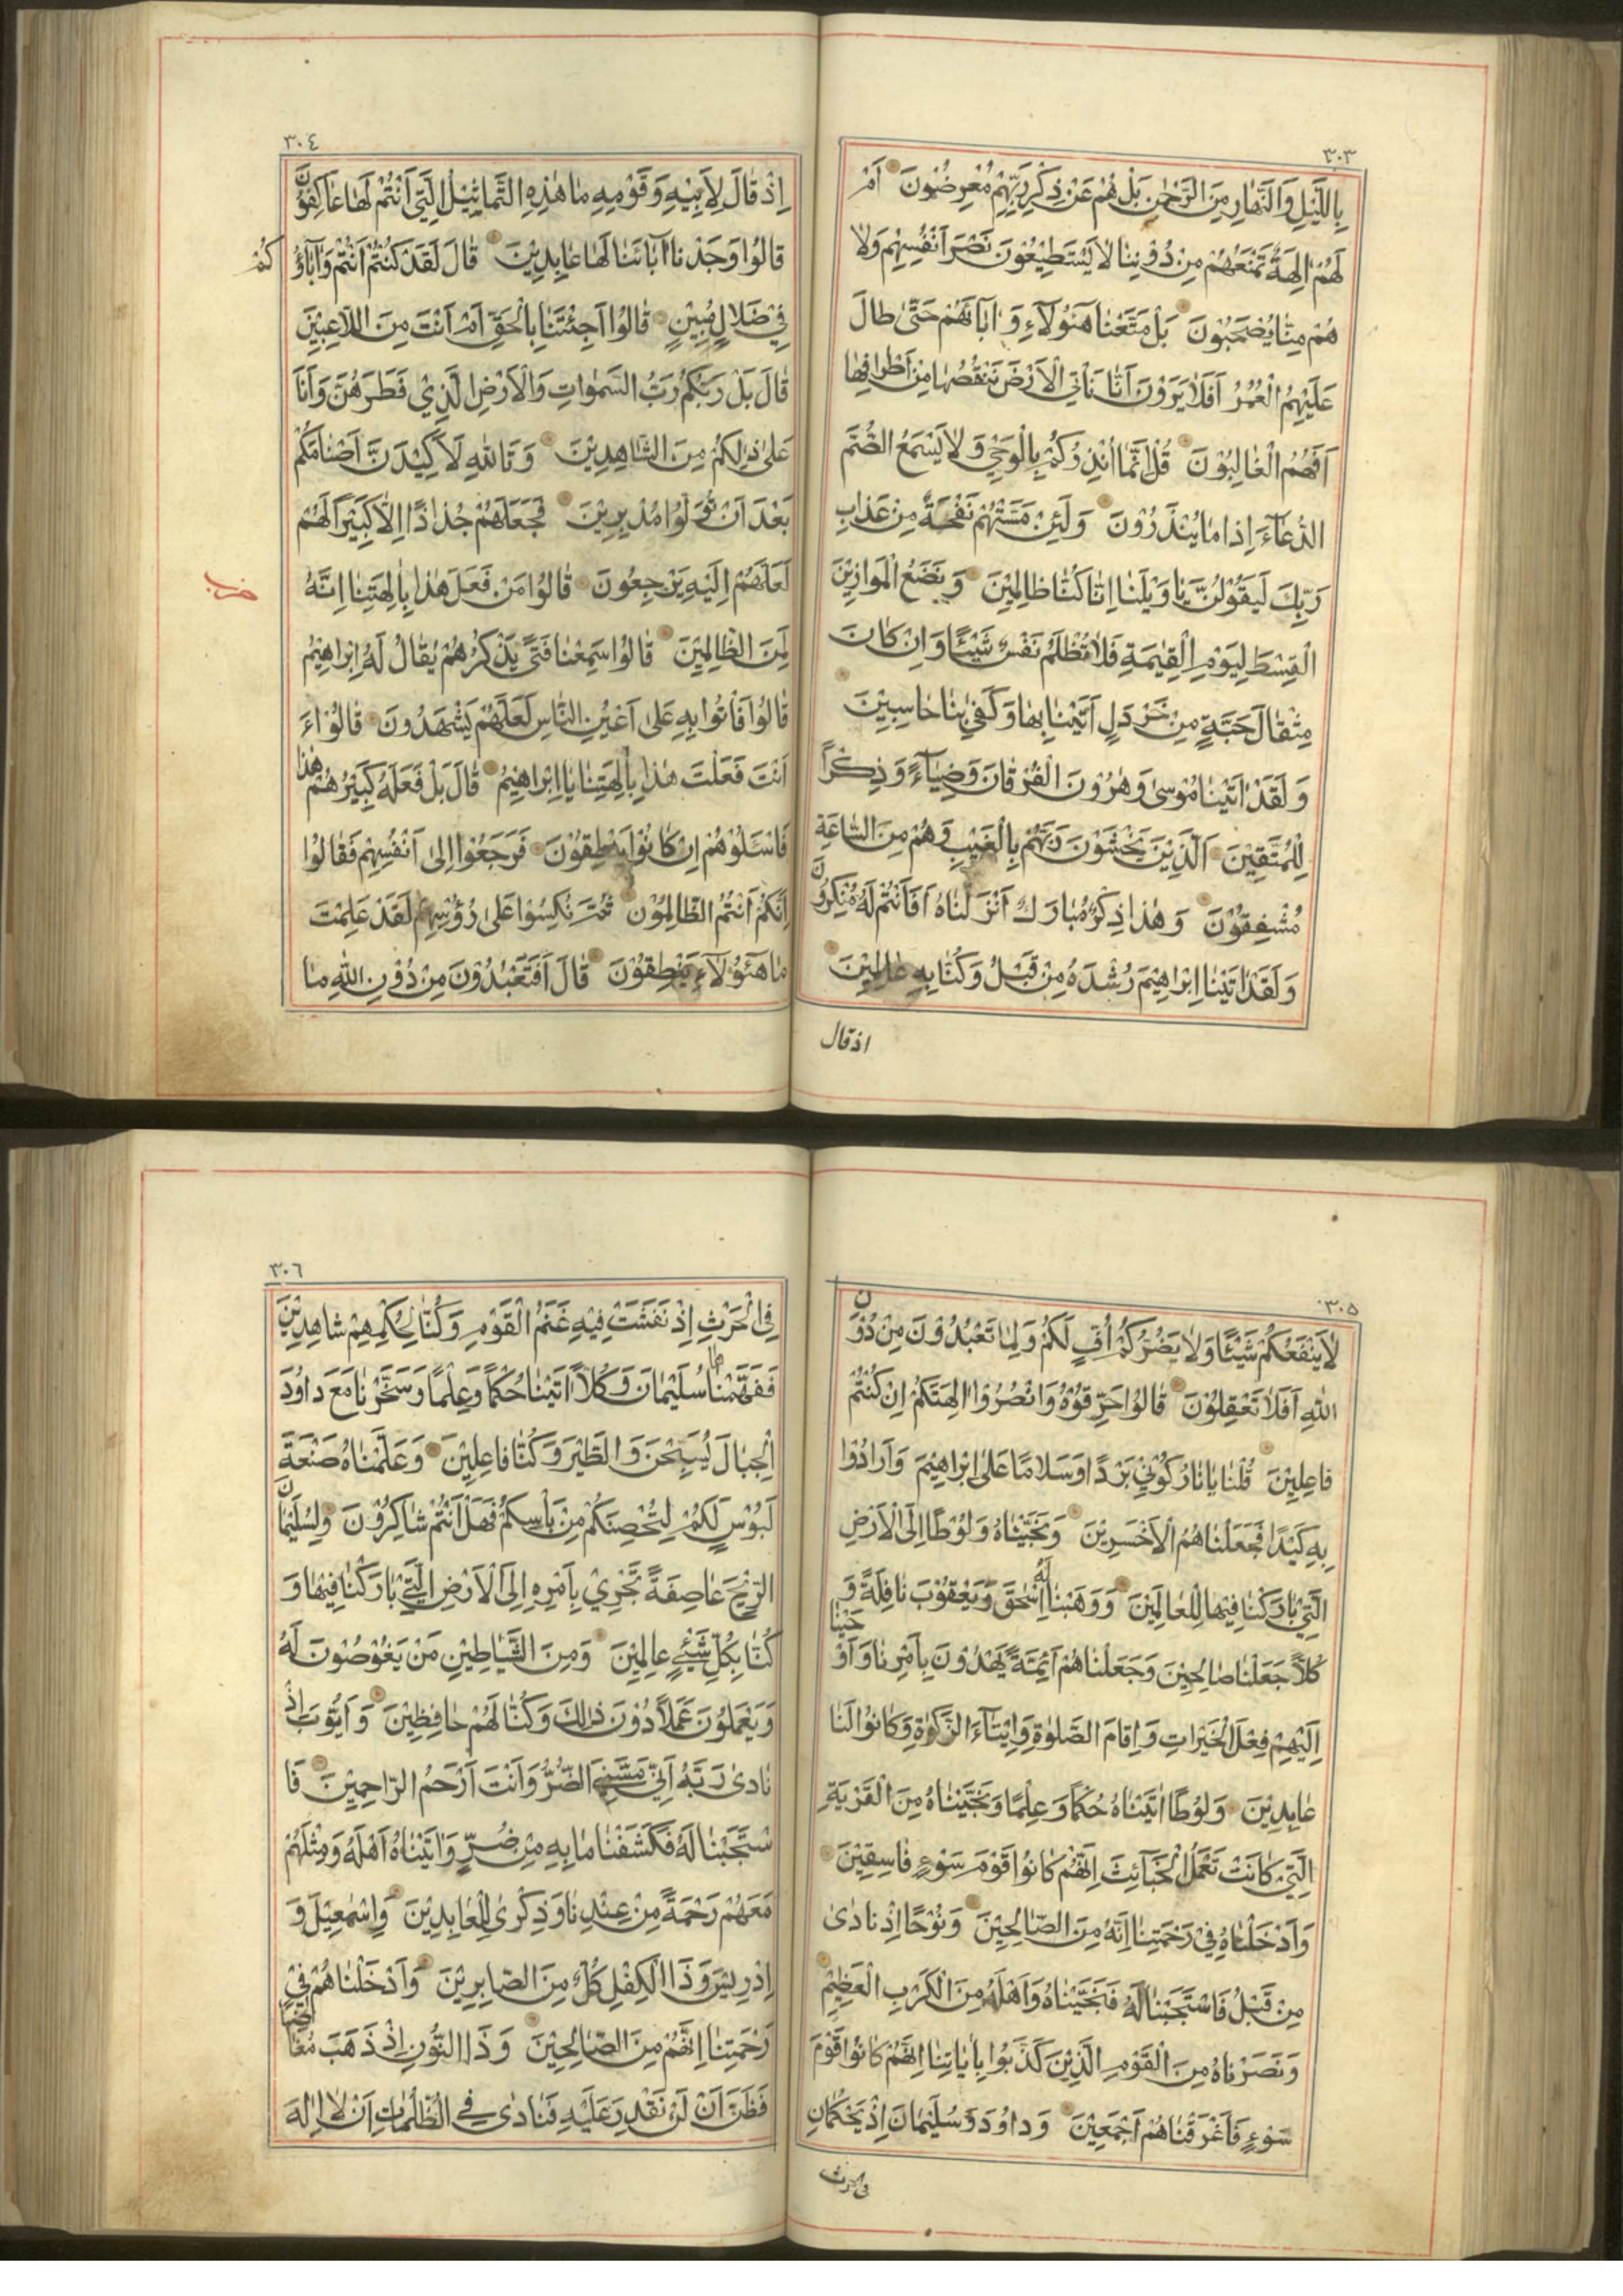 ٣٠٣
بِاللَّيْلِ وَالنَّهَارِ مِنَ الرَّحْمٰنِ بَلْ هُمْ عَنْ ذِكْرِ رَبِّهِمْ مُعْرِضُونَ اَمْ
لَهُمْ اٰلِهَةٌ تَمْنَعُهُمْ مِنْ دُوْنِنَا لَا يَسْتَطِيْعُوْنَ نَصْرَ اَنْفُسِهِمْ وَلَا
هُمْ مِنَّا يُصْحَبُوْنَ بَلْ مَتَّعْنَا هٰؤُلَآءِ وَ اٰبَائَهُمْ حَتّٰى طَالَ
عَلَيْهِمُ الْعُمُرُ اَفَلَا يَرَوْنَ اَنَّا نَأْتِي الْاَرْضَ نَنْقُصُهَا مِنْ اَطْرَافِهَا
اَفَهُمُ الْغَالِبُوْنَ قُلْ اِنَّمَا اُنْذِرُكُمْ بِالْوَحْيِ وَلَا يَسْمَعُ الصُّمُّ
الدُّعَآءَ اِذَا مَا يُنْذَرُوْنَ وَلَئِنْ مَسَّتْهُمْ نَفْحَةٌ مِنْ عَذَابِ
رَبِّكَ لَيَقُوْلُنَّ يَا وَيْلَنَا اِنَّا كُنَّا ظَالِمِيْنَ وَ نَضَعُ الْمَوَازِيْنَ
الْقِسْطَ لِيَوْمِ الْقِيٰمَةِ فَلَا تُظْلَمُ نَفْسٌ شَيْئًا وَاِنْ كَانَ
مِثْقَالَ حَبَّةٍ مِنْ خَرْدَلٍ اَتَيْنَا بِهَا وَكَفٰى بِنَا حَاسِبِيْنَ
وَلَقَدْ اٰتَيْنَا مُوْسٰى وَهٰرُوْنَ الْفُرْقَانَ وَضِيَآءً وَذِكْرًا
لِلْمُتَّقِيْنَ اَلَّذِيْنَ يَخْشَوْنَ رَبَّهُمْ بِالْغَيْبِ وَهُمْ مِنَ السَّاعَةِ
مُشْفِقُوْنَ وَهٰذَا ذِكْرٌ مُبَارَكٌ اَنْزَلْنَاهُ اَفَاَنْتُمْ لَهُ مُنْكِرُوْنَ
وَلَقَدْ اٰتَيْنَا اِبْرَاهِيْمَ رُشْدَهُ مِنْ قَبْلُ وَكُنَّا بِهِ عَالِمِيْنَ
اذ قال
٣٠٤
اِذْ قَالَ لِاَبِيْهِ وَقَوْمِهِ مَا هٰذِهِ التَّمَاثِيْلُ الَّتِي اَنْتُمْ لَهَا عَاكِفُوْنَ
قَالُوْا وَجَدْنَا اٰبَائَنَا لَهَا عَابِدِيْنَ قَالَ لَقَدْ كُنْتُمْ اَنْتُمْ وَاٰبَآؤُ كُمْ
فِيْ ضَلَالٍ مُبِيْنٍ قَالُوْا اَجِئْتَنَا بِالْحَقِّ اَمْ اَنْتَ مِنَ اللَّاعِبِيْنَ
قَالَ بَلْ رَبُّكُمْ رَبُّ السَّمٰوَاتِ وَالْاَرْضِ الَّذِيْ فَطَرَهُنَّ وَاَنَا
عَلٰى ذٰلِكُمْ مِنَ الشَّاهِدِيْنَ وَتَاللّٰهِ لَاَكِيْدَنَّ اَصْنَامَكُمْ
بَعْدَ اَنْ تُوَلُّوْا مُدْبِرِيْنَ فَجَعَلَهُمْ جُذَاذًا اِلَّا كَبِيْرًا لَهُمْ
لَعَلَّهُمْ اِلَيْهِ يَرْجِعُونَ قَالُوْا مَنْ فَعَلَ هٰذَا بِاٰلِهَتِنَا اِنَّهُ
لَمِنَ الظَّالِمِيْنَ قَالُوْا سَمِعْنَا فَتًى يَذْكُرُهُمْ يُقَالُ لَهُ اِبْرَاهِيْمُ
قَالُوْا فَأْتُوْا بِهِ عَلٰى اَعْيُنِ النَّاسِ لَعَلَّهُمْ يَشْهَدُوْنَ قَالُوْا ءَ
اَنْتَ فَعَلْتَ هٰذَا بِاٰلِهَتِنَا يَا اِبْرَاهِيْمُ قَالَ بَلْ فَعَلَهُ كَبِيْرُهُمْ هٰذَا
فَاسْئَلُوْهُمْ اِنْ كَانُوْا يَنْطِقُوْنَ فَرَجَعُوْا اِلٰى اَنْفُسِهِمْ فَقَالُوْا
اِنَّكُمْ اَنْتُمُ الظَّالِمُوْنَ ثُمَّ نُكِسُوْا عَلٰى رُؤُسِهِمْ لَقَدْ عَلِمْتَ
مَا هٰؤُلَآءِ يَنْطِقُوْنَ قَالَ اَفَتَعْبُدُوْنَ مِنْ دُوْنِ اللّٰهِ مَا
٣٠٥
لَا يَنْفَعُكُمْ شَيْئًا وَلَا يَضُرُّكُمْ اُفٍّ لَكُمْ وَلِمَا تَعْبُدُوْنَ مِنْ دُوْنِ
اللّٰهِ اَفَلَا تَعْقِلُوْنَ قَالُوْا حَرِّقُوْهُ وَانْصُرُوْا اٰلِهَتَكُمْ اِنْ كُنْتُمْ
فَاعِلِيْنَ قُلْنَا يَا نَارُ كُوْنِيْ بَرْدًا وَسَلَامًا عَلٰى اِبْرَاهِيْمَ وَاَرَادُوْا
بِهِ كَيْدًا فَجَعَلْنَاهُمُ الْاَخْسَرِيْنَ وَنَجَّيْنَاهُ وَلُوْطًا اِلَى الْاَرْضِ
الَّتِيْ بَارَكْنَا فِيْهَا لِلْعَالَمِيْنَ وَوَهَبْنَا لَهُ اِسْحٰقَ وَيَعْقُوْبَ نَافِلَةً وَ
كُلًّا جَعَلْنَا صَالِحِيْنَ وَجَعَلْنَاهُمْ اَئِمَّةً يَهْدُوْنَ بِاَمْرِنَا وَاَوْحَيْنَا
اِلَيْهِمْ فِعْلَ الْخَيْرَاتِ وَاِقَامَ الصَّلٰوةِ وَاِيْتَآءَ الزَّكٰوةِ وَكَانُوْا لَنَا
عَابِدِيْنَ وَلُوْطًا اٰتَيْنَاهُ حُكْمًا وَعِلْمًا وَنَجَّيْنَاهُ مِنَ الْقَرْيَةِ
الَّتِيْ كَانَتْ تَعْمَلُ الْخَبَآئِثَ اِنَّهُمْ كَانُوْا قَوْمَ سَوْءٍ فَاسِقِيْنَ
وَاَدْخَلْنَاهُ فِيْ رَحْمَتِنَا اِنَّهُ مِنَ الصَّالِحِيْنَ وَنُوْحًا اِذْ نَادٰى
مِنْ قَبْلُ فَاسْتَجَبْنَا لَهُ فَنَجَّيْنَاهُ وَاَهْلَهُ مِنَ الْكَرْبِ الْعَظِيْمِ
وَنَصَرْنَاهُ مِنَ الْقَوْمِ الَّذِيْنَ كَذَّبُوْا بِاٰيَاتِنَا اِنَّهُمْ كَانُوْا قَوْمَ
سَوْءٍ فَاَغْرَقْنَاهُمْ اَجْمَعِيْنَ وَدَاوُدَ وَسُلَيْمَانَ اِذْ يَحْكُمَانِ
فى الحرث
٣٠٦
فِي الْحَرْثِ اِذْ نَفَشَتْ فِيْهِ غَنَمُ الْقَوْمِ وَكُنَّا لِحُكْمِهِمْ شَاهِدِيْنَ
فَفَهَّمْنَاهَا سُلَيْمَانَ وَكُلًّا اٰتَيْنَا حُكْمًا وَعِلْمًا وَسَخَّرْنَا مَعَ دَاوُدَ
الْجِبَالَ يُسَبِّحْنَ وَالطَّيْرَ وَكُنَّا فَاعِلِيْنَ وَعَلَّمْنَاهُ صَنْعَةَ
لَبُوْسٍ لَكُمْ لِتُحْصِنَكُمْ مِنْ بَأْسِكُمْ فَهَلْ اَنْتُمْ شَاكِرُوْنَ وَلِسُلَيْمَانَ
الرِّيْحَ عَاصِفَةً تَجْرِيْ بِاَمْرِهِ اِلَى الْاَرْضِ الَّتِيْ بَارَكْنَا فِيْهَا وَ
كُنَّا بِكُلِّ شَيْءٍ عَالِمِيْنَ وَمِنَ الشَّيَاطِيْنِ مَنْ يَغُوْصُوْنَ لَهُ
وَيَعْمَلُوْنَ عَمَلًا دُوْنَ ذٰلِكَ وَكُنَّا لَهُمْ حَافِظِيْنَ وَاَيُّوْبَ اِذْ
نَادٰى رَبَّهُ اَنِّيْ مَسَّنِيَ الضُّرُّ وَاَنْتَ اَرْحَمُ الرَّاحِمِيْنَ فَا
سْتَجَبْنَا لَهُ فَكَشَفْنَا مَا بِهِ مِنْ ضُرٍّ وَاٰتَيْنَاهُ اَهْلَهُ وَمِثْلَهُمْ
مَعَهُمْ رَحْمَةً مِنْ عِنْدِنَا وَذِكْرٰى لِلْعَابِدِيْنَ وَاِسْمٰعِيْلَ وَ
اِدْرِيْسَ وَذَا الْكِفْلِ كُلٌّ مِنَ الصَّابِرِيْنَ وَاَدْخَلْنَاهُمْ فِيْ
رَحْمَتِنَا اِنَّهُمْ مِنَ الصَّالِحِيْنَ وَذَا النُّوْنِ اِذْ ذَهَبَ مُغَاضِبًا
فَظَنَّ اَنْ لَنْ نَقْدِرَ عَلَيْهِ فَنَادٰى فِي الظُّلُمَاتِ اَنْ لَا اِلٰهَ